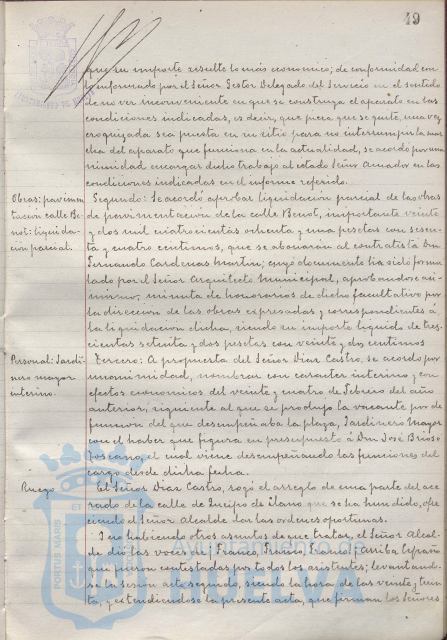 49
que su importe resulte lo más economico; de conformidad con
lo informado por el Señor Gestor Delegado del Servicio en el sentido
de no ver inconveniente en que se construya el aparato en las
condiciones indicadas, es decir, que pieza que se quite, una vez
croquizada sea puesta en su sitio para no interrumpir la mar-
cha del aparato que funciona en la actualidad, se acordó por una-
nimidad encargar dicho trabajo al citado Señor Amador en las
condiciones indicadas en el informe referido.
Obras: pavimen-
tacion calle Be-
not: liquida-
cion parcial.
Segundo: Se acordó aprobar liquidacion parcial de las obras
de pavimentacion de la calle Benot, importante veinte
y dos mil cuatrocientas ochenta y una pesetas con sesen-
ta y cuatro centimos, que se abonarán al contratista Don
Fernando Cardenas Martin; cuyo documento ha sido formu-
lado por el Señor Arquitecto Municipal, aprobandose asi-
mismo, minuta de honorarios de dicho facultativo por
la direccion de las obras expresadas y correspondientes á
la liquidacion dicha, siendo su importe liquido de tres-
cientas setenta y dos pesetas con veinte y dos centimos
Personal: Jardi-
nero mayor
interino.
Tercero: A propuesta del Señor Diaz Castro, se acordó por
unanimidad, nombrar con caracter interino y con
efectos economicos del veinte y cuatro de Febrero del año
anterior, siguiente al que se produjo la vacante por de-
funcion del que desempeñaba la plaza, Jardinero Mayor
con el haber que figura en presupuesto á Don José
Toscano, el cual viene desempeñando las funciones del
cargo desde dicha fecha.
Ruego
El Señor Diaz Castro, rogó el arreglo de una parte del ace-
rado de la calle de Queipo de Llano que se ha hundido, ofre-
ciendo el Señor Alcalde dar las ordenes oportunas.
Y no habiendo otros asuntos de que tratar, el Señor Alcal-
de dió las voces de Franco, Franco, Franco ¡Arriba España!
que fueron contestadas por todos los asistentes; levantando-
se la sesion acto seguido, siendo la hora de las veinte y trein-
ta, y extendiendose la presente acta, que firman los Señores
Ayuntamiento de
HUELVA
PORTUS MARIS ET